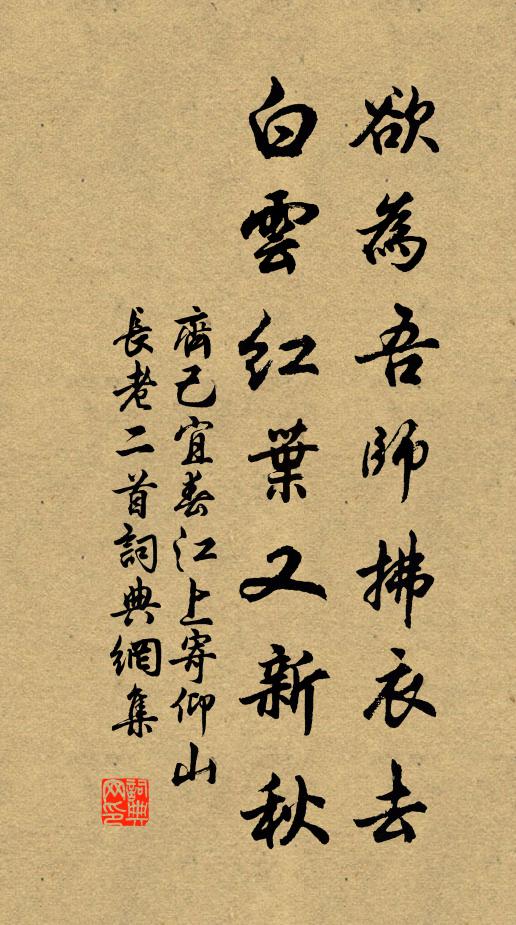 欲為吾師拂衣去
白雲紅葉又新秋
齊己宜春江上寄仰山
長老二首詞典網集
詞典
網印